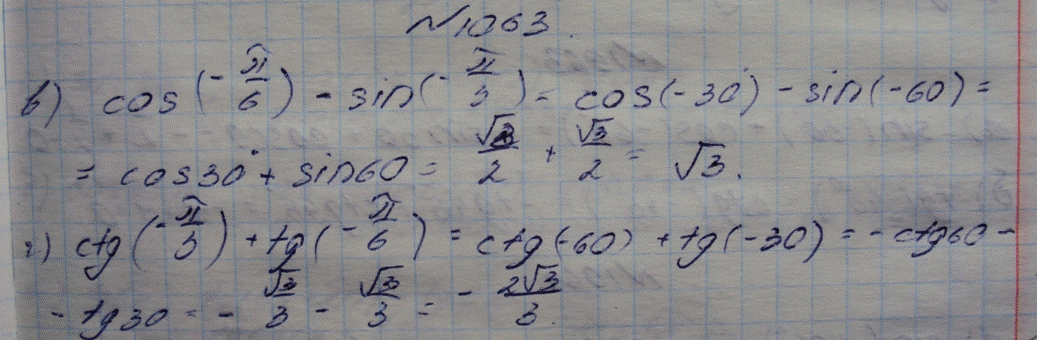 №1063.
в) cos(-π/6) - sin(-π/3) = cos(-30°) - sin(-60) =
= cos30° + sin60 = √3/2 + √3/2 = √3.
г) ctg(-π/3) + tg(-π/6) = ctg(-60) + tg(-30) = -ctg60 -
- tg30 = - √3/3 - √3/3 = - 2√3/3.